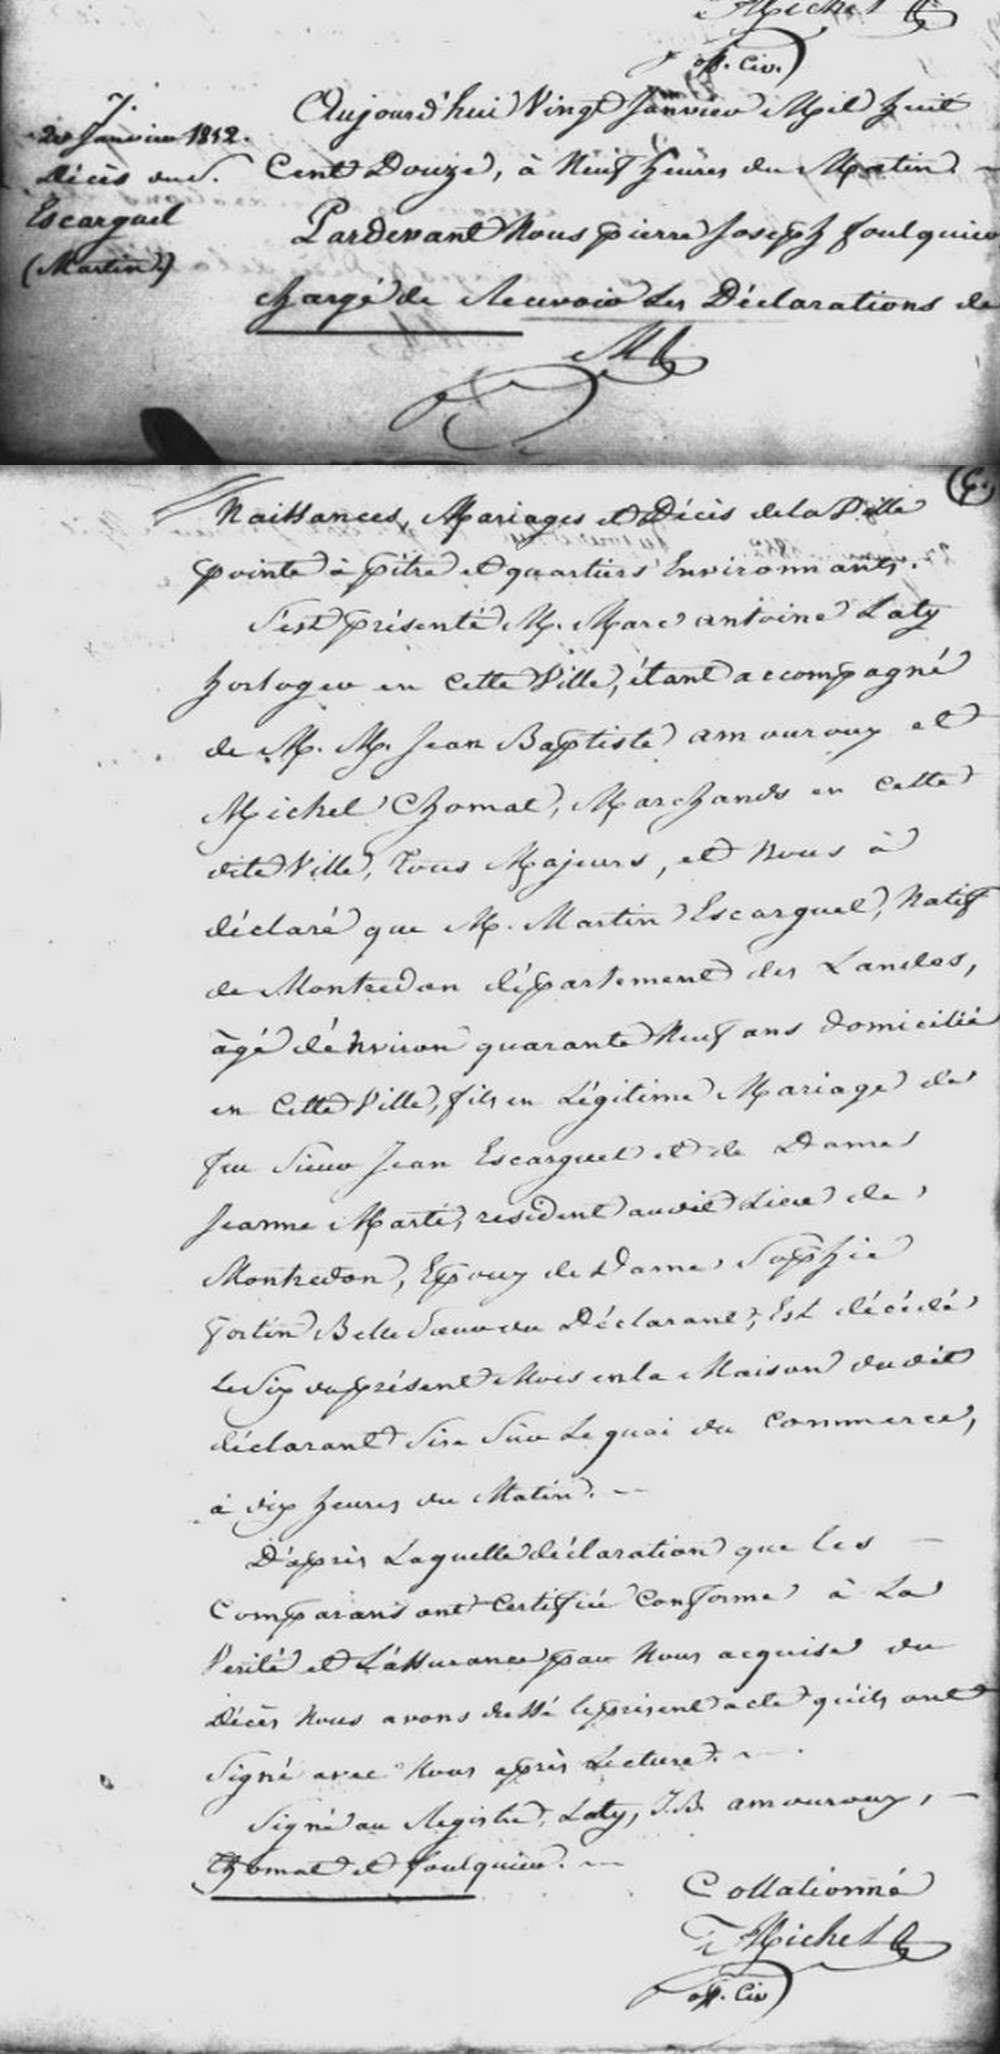 Michel
off. Civ.
7.
20 Janvier 1812.
Décès du S.
Escarguel
(Martin)
Aujourd'hui Vingt Janvier Mil huit
Cent Douze, à Neuf heures du Matin —
Pardevant Nous pierre Joseph foulquier
chargé de Recevoir Les Déclarations de
Naissances, Mariages et Décès de la Ville
pointe à pitre et quartiers Environnants.
S'est présenté M. Marc antoine Laty
horloger en cette Ville, étant accompagné
de M. M. Jean Baptiste amouroux et
Michel Chomat, Marchands en cette
dite Ville, tous Majeurs, et Nous à
déclaré que M. Martin Escarguel, Natif
de Montredon département des Landes,
âgé d'énviron quarante Neuf ans domicilié
en Cette Ville, fils en Légitime Mariage de
feu Sieur Jean Escarguel et de Dame
Jeanne Marti, resident audit Lieu de
Montredon, Epoux de Dame Sophie
fortin Belle Sœur du Déclarant, Est décédé
Le Six du présent Mois en la Maison dudit
déclarant Sise Sur Le quai du Commerce,
à dix heures du Matin. —
D'après Laquelle déclaration que les —
Comparans ont Certifiée Conforme à La
Verité et L'assurance par Nous acquise du
Décès Nous avons dressé le présent acte qu'ils ont
Signé avec Nous après Lecture. —
Signé au Registre, Laty, J. B. amouroux, —
Chomat et foulquier. —
Collationné
Michel
off. Civ